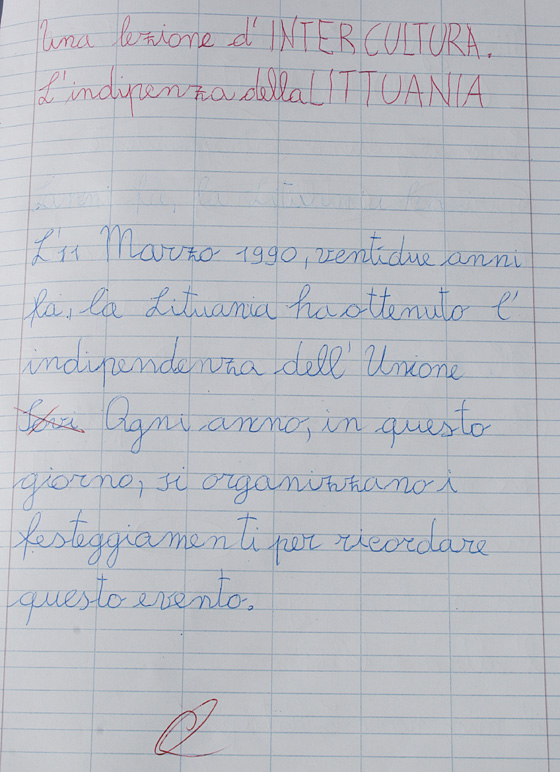 Una lezione d'INTERCULTURA.
L'indipenza della LITTUANIA
L'11 Marzo 1990, ventidue anni
fa, la Lituania ha ottenuto l'
indipendenza dell'Unione
Ogni anno, in questo
giorno, si organizzano i
festeggiamenti per ricordare
questo evento.